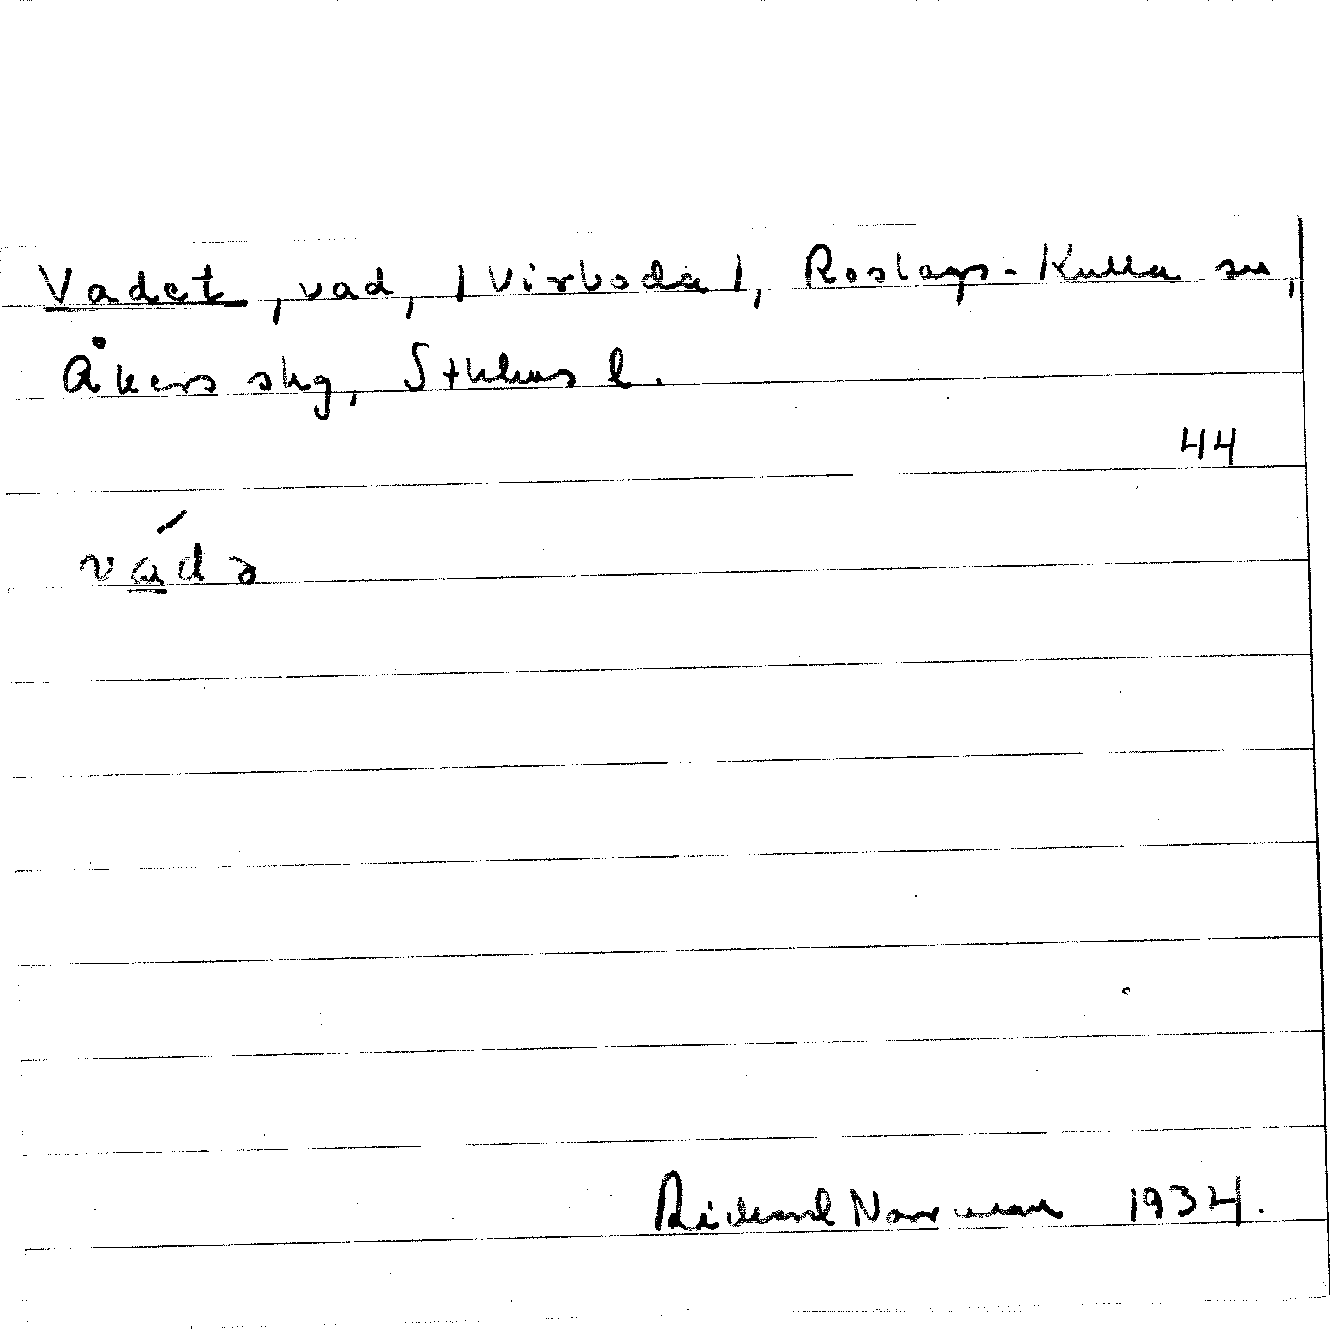 Vadet, vad, |Virboda|, Roslags-Kulla sn,
Åkers skg, Sthlms l.
44
vádə
Rickard Norrman 1934.